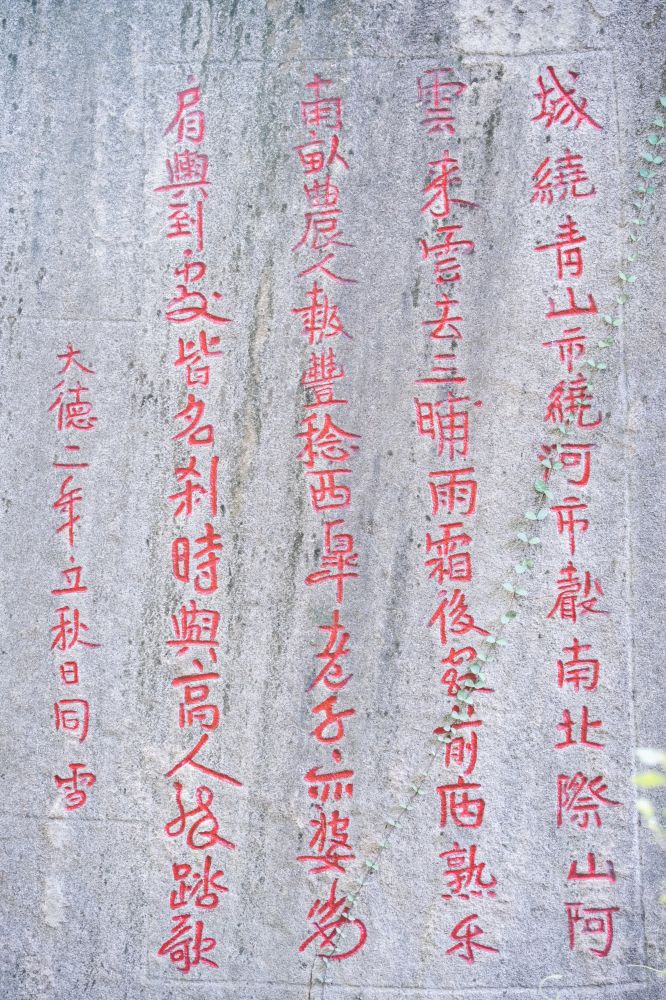 城繞青山市繞河市聲南北際山阿
雲來雲去三晡雨霜後霜前熟禾
南畝農人報豐稔西皐老子亦婆娑
肩輿到處皆名刹時與高人踏歌
大德二年立秋日同雪